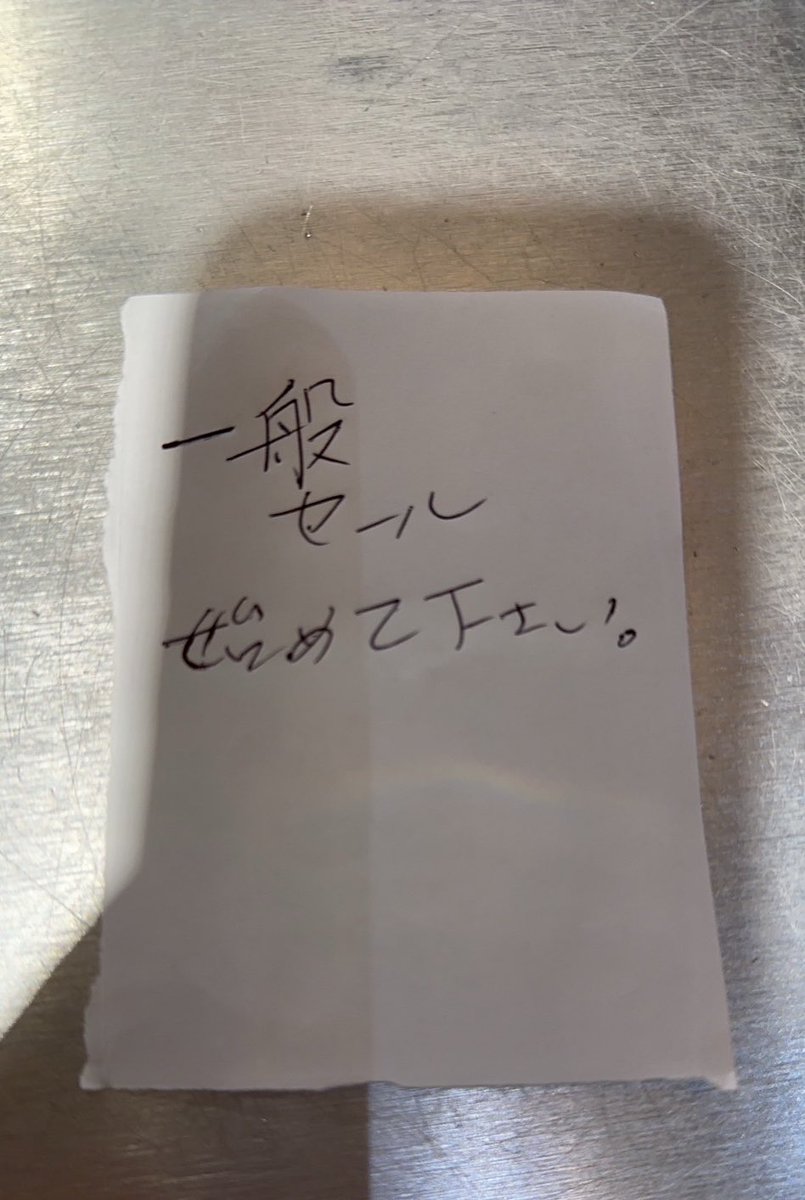 一般
セール
めて下さい。